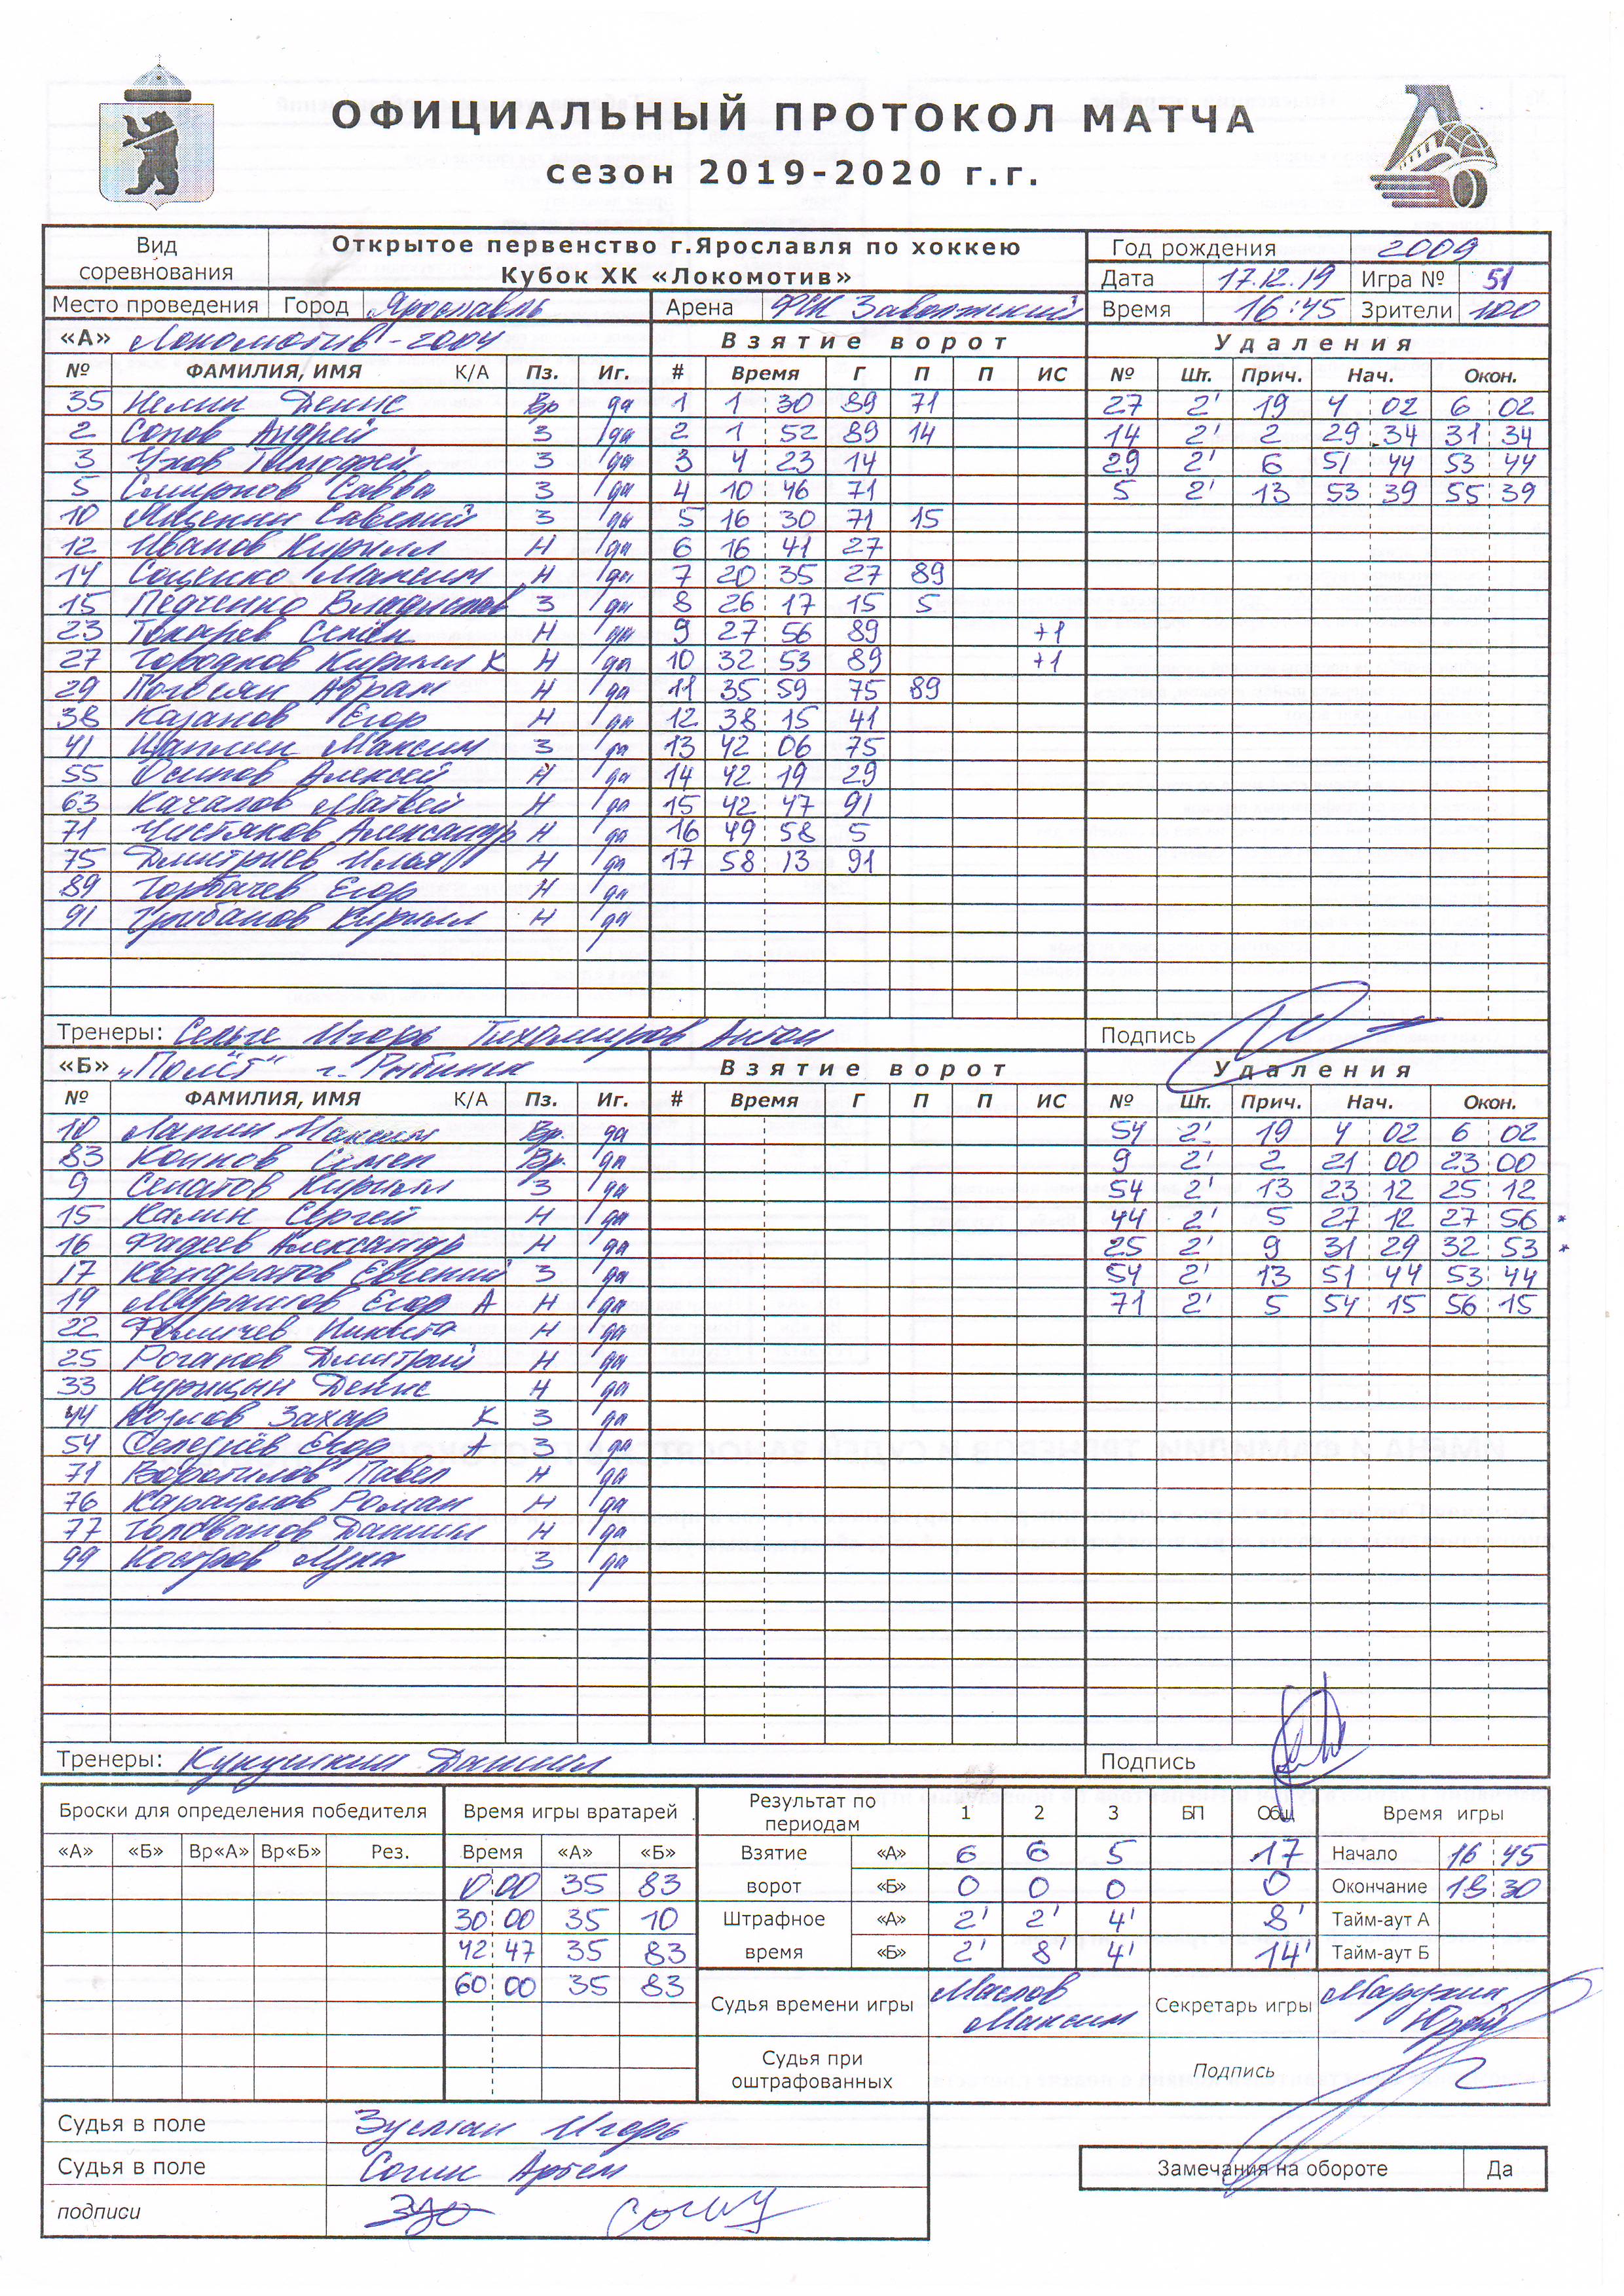 ОФИЦИАЛЬНЫЙ ПРОТОКОЛ МАТЧА
сезон 2019-2020 г.г.
Вид соревнования Открытое первенство г.Ярославля по хоккею Кубок ХК «Локомотив» Год рождения 2009
Дата 17.12.19 Игра № 51
Место проведения Город Ярославль Арена ФСК Заволжский Время 16:45 Зрители 100
«А» Локомотив-2004 Взятие ворот Удаления
№ ФАМИЛИЯ, ИМЯ К/А Пз. Иг. # Время Г П П ИС № Шт. Прич. Нач. Окон.
35 Нелин Денис Вр да 1 1 30 89 71 27 2' 19 4 02 6 02
2 Сопов Андрей З да 2 1 52 89 14 14 2' 2 29 34 31 34
3 Ухов Тимофей З да 3 4 23 14 29 2' 6 51 44 53 44
5 Смирнов Савва З да 4 10 46 71 5 2' 13 53 39 55 39
10 Савелий З да 5 16 30 71 15
12 Иванов Кирилл Н да 6 16 41 27
14 Соценко Максим Н да 7 20 35 27 89
15 Педченко Владислав З да 8 26 17 15 5
23 Токарев Семён Н да 9 27 56 89 +1
27 Городков Кирилл К Н да 10 32 53 89 +1
29 Погосян Абрам Н да 11 35 59 75 89
38 Казанов Егор Н да 12 38 15 41
41 Шаплин Максим З да 13 42 06 75
55 Осипов Алексей Н да 14 42 19 29
63 Качалов Матвей Н да 15 42 47 91
71 Чистяков Александр Н да 16 49 58 5
75 Дмитриев Илья Н да 17 58 13 91
89 Горбачев Егор Н да
91 Грибанов Кирилл Н да
Тренеры: Сельге Игорь Тихомиров Антон Подпись
«Б» „Полёт“ г. Рыбинск Взятие ворот Удаления
№ ФАМИЛИЯ, ИМЯ К/А Пз. Иг. # Время Г П П ИС № Шт. Прич. Нач. Окон.
10 Лапин Максим Вр. да 54 2' 19 4 02 6 02
83 Коннов Семен Вр. да 9 2' 2 21 00 23 00
9 Сенатов Кирилл З да 54 2' 13 23 12 25 12
15 Калин Сергей Н да 44 2' 5 27 12 27 56 *
16 Фадеев Александр Н да 25 2' 9 31 29 32 53 *
17 Кондратов Евгений З да 54 2' 13 51 44 53 44
19 Мурашов Егор А Н да 71 2' 5 54 15 56 15
22 Фомичев Никита Н да
25 Роганов Дмитрий Н да
33 Курицын Денис Н да
44 Козлов Захар К З да
54 Селезнёв Егор А З да
71 Воротилов Павел Н да
76 Караулов Роман Н да
77 Голованов Даниил Н да
99 Костров Лука З да
Тренеры: Кукушкин Даниил Подпись
Броски для определения победителя Время игры вратарей Результат по периодам 1 2 3 БП Общ Время игры
«А» «Б» Вр«А» Вр«Б» Рез. Время «А» «Б» Взятие «А» 6 6 5 17 Начало 16 45
0 00 35 83 ворот «Б» 0 0 0 0 Окончание 18 30
30 00 35 10 Штрафное «А» 2' 2' 4' 8' Тайм-аут А
42 47 35 83 время «Б» 2' 8' 4' 14' Тайм-аут Б
60 00 35 83 Судья времени игры Маслов Максим Секретарь игры Марухин Юрий
Судья при оштрафованных Подпись
Судья в поле Зусман Игорь
Судья в поле Согин Артем Замечания на обороте Да
подписи